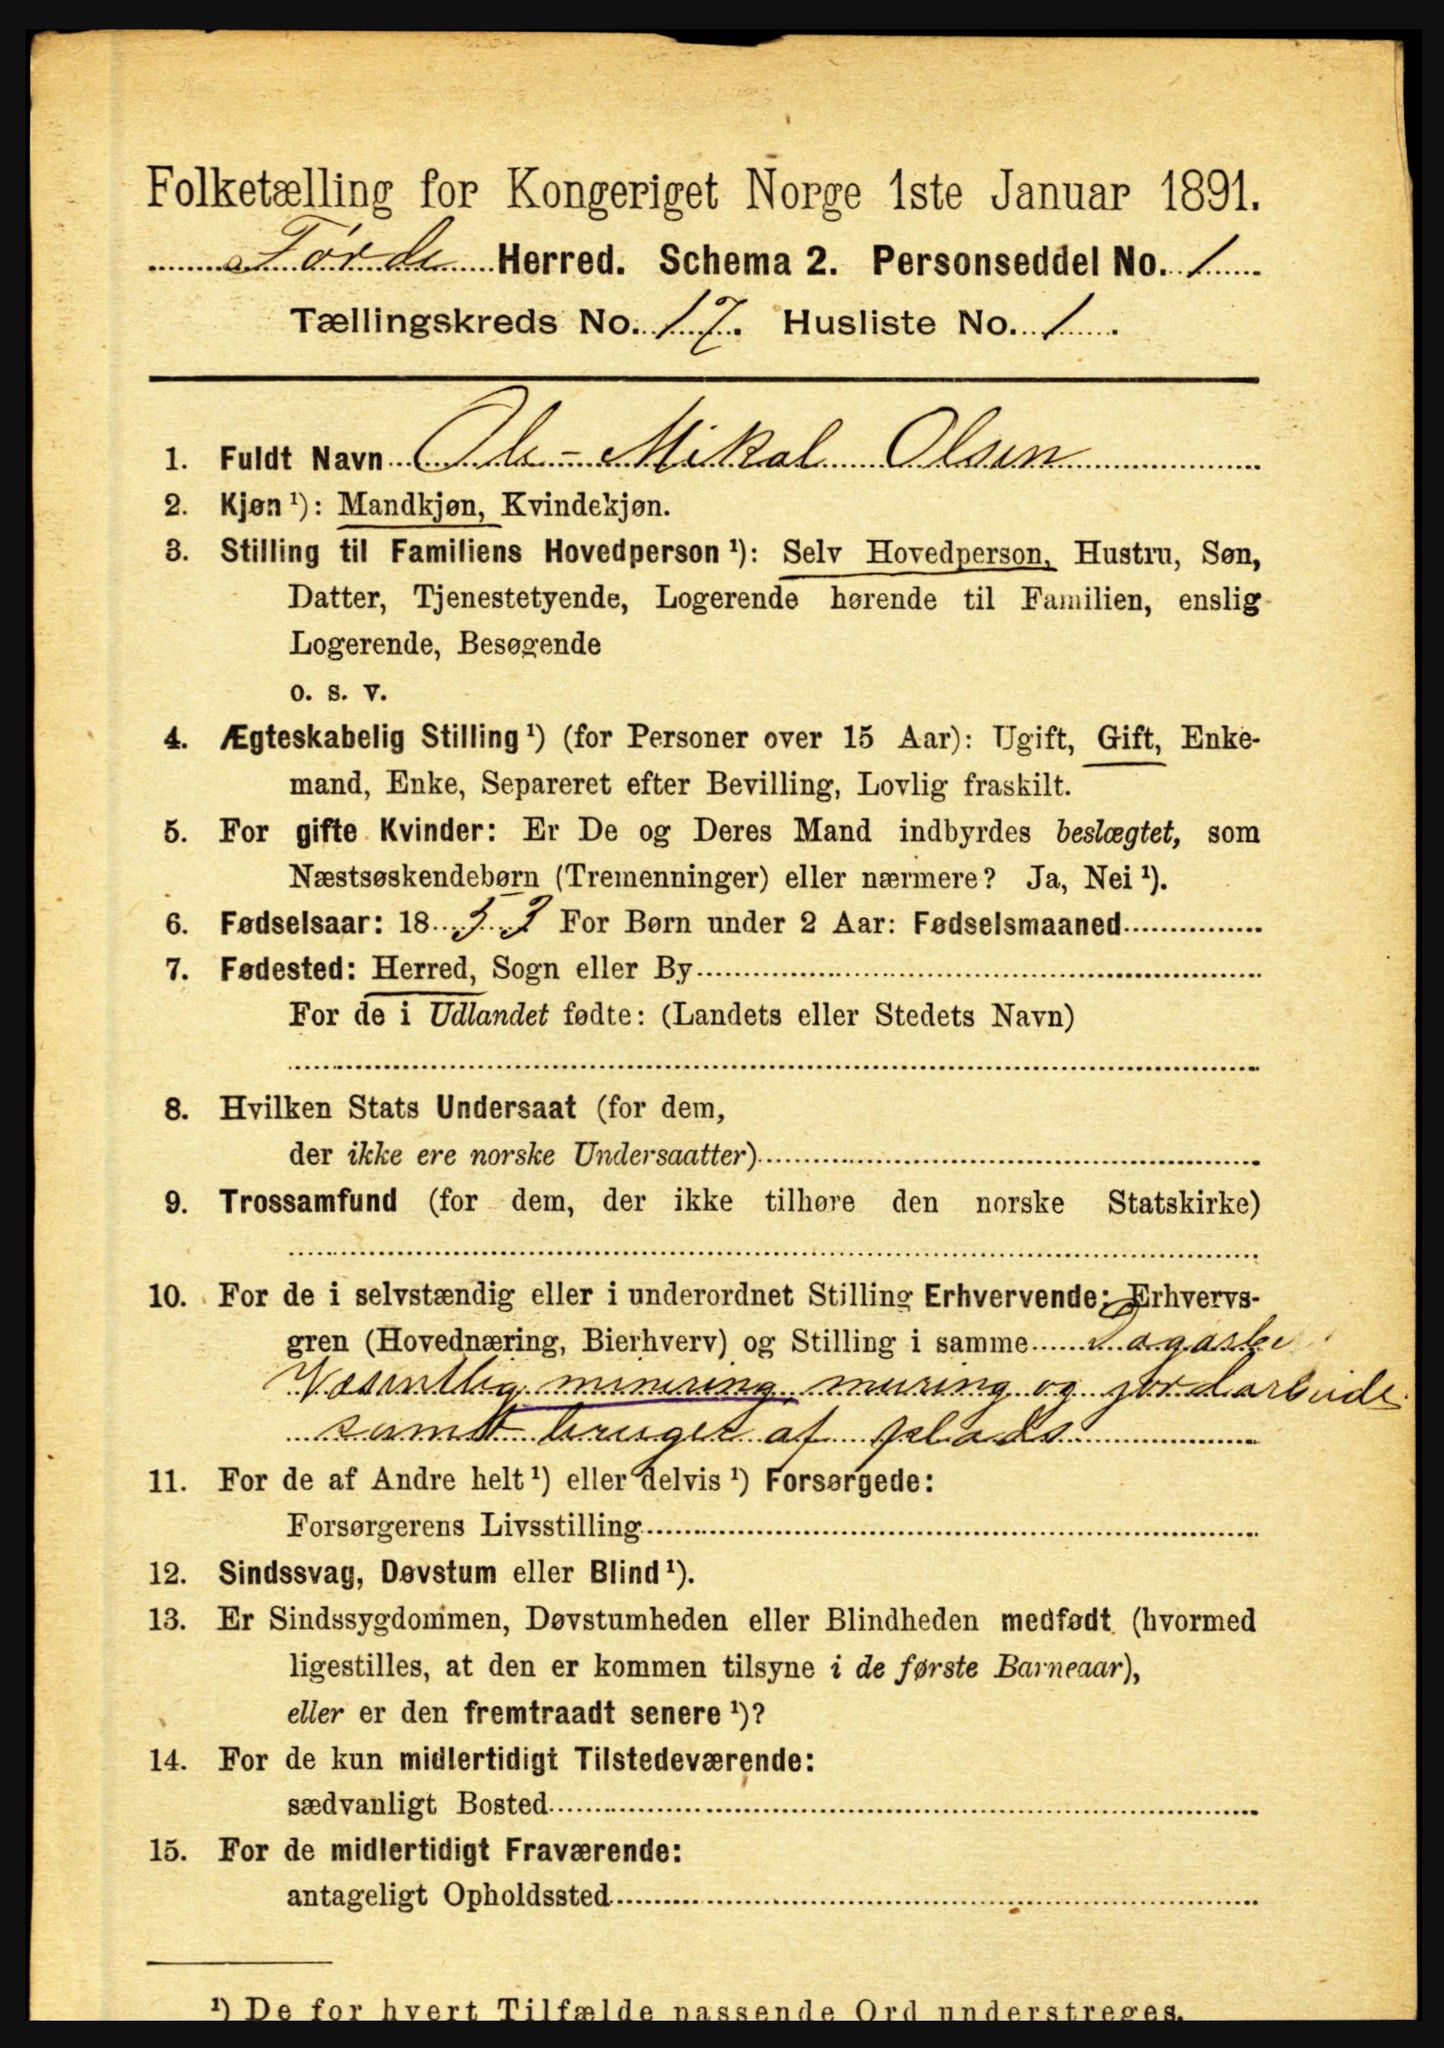 Folketælling for Kongeriget Norge 1ste Januar 1891.
Førde Herred. Schema 2. Personseddel No. 1
Tællingskreds No. 17. Husliste No. 1.
1. Fuldt Navn Ole-Mikal Olsen
2. Kjøn ¹): Mandkjøn, Kvindekjøn.
3. Stilling til Familiens Hovedperson ¹): Selv Hovedperson, Hustru, Søn,
Datter, Tjenestetyende, Logerende hørende til Familien, enslig
Logerende, Besøgende
o. s. v.
4. Ægteskabelig Stilling ¹) (for Personer over 15 Aar): Ugift, Gift, Enke-
mand, Enke, Separeret efter Bevilling, Lovlig fraskilt.
5. For gifte Kvinder: Er De og Deres Mand indbyrdes beslægtet, som
Næstsøskendebørn (Tremenninger) eller nærmere? Ja, Nei ¹).
6. Fødselsaar: 1853 For Børn under 2 Aar: Fødselsmaaned
7. Fødested: Herred, Sogn eller By
For de i Udlandet fødte: (Landets eller Stedets Navn)
8. Hvilken Stats Undersaat (for dem,
der ikke ere norske Undersaatter)
9. Trossamfund (for dem, der ikke tilhøre den norske Statskirke)
10. For de i selvstændig eller i underordnet Stilling Erhvervende: Erhvervs-
gren (Hovednæring, Bierhverv) og Stilling i samme
Væsentlig minering, muring og jordarbeide
samt bruger af plads
11. For de af Andre helt ¹) eller delvis ¹) Forsørgede:
Forsørgerens Livsstilling
12. Sindssvag, Døvstum eller Blind ¹).
13. Er Sindssygdommen, Døvstumheden eller Blindheden medfødt (hvormed
ligestilles, at den er kommen tilsyne i de første Barneaar),
eller er den fremtraadt senere ¹)?
14. For de kun midlertidigt Tilstedeværende:
sædvanligt Bosted
15. For de midlertidigt Fraværende:
antageligt Opholdssted
¹) De for hvert Tilfælde passende Ord understreges.